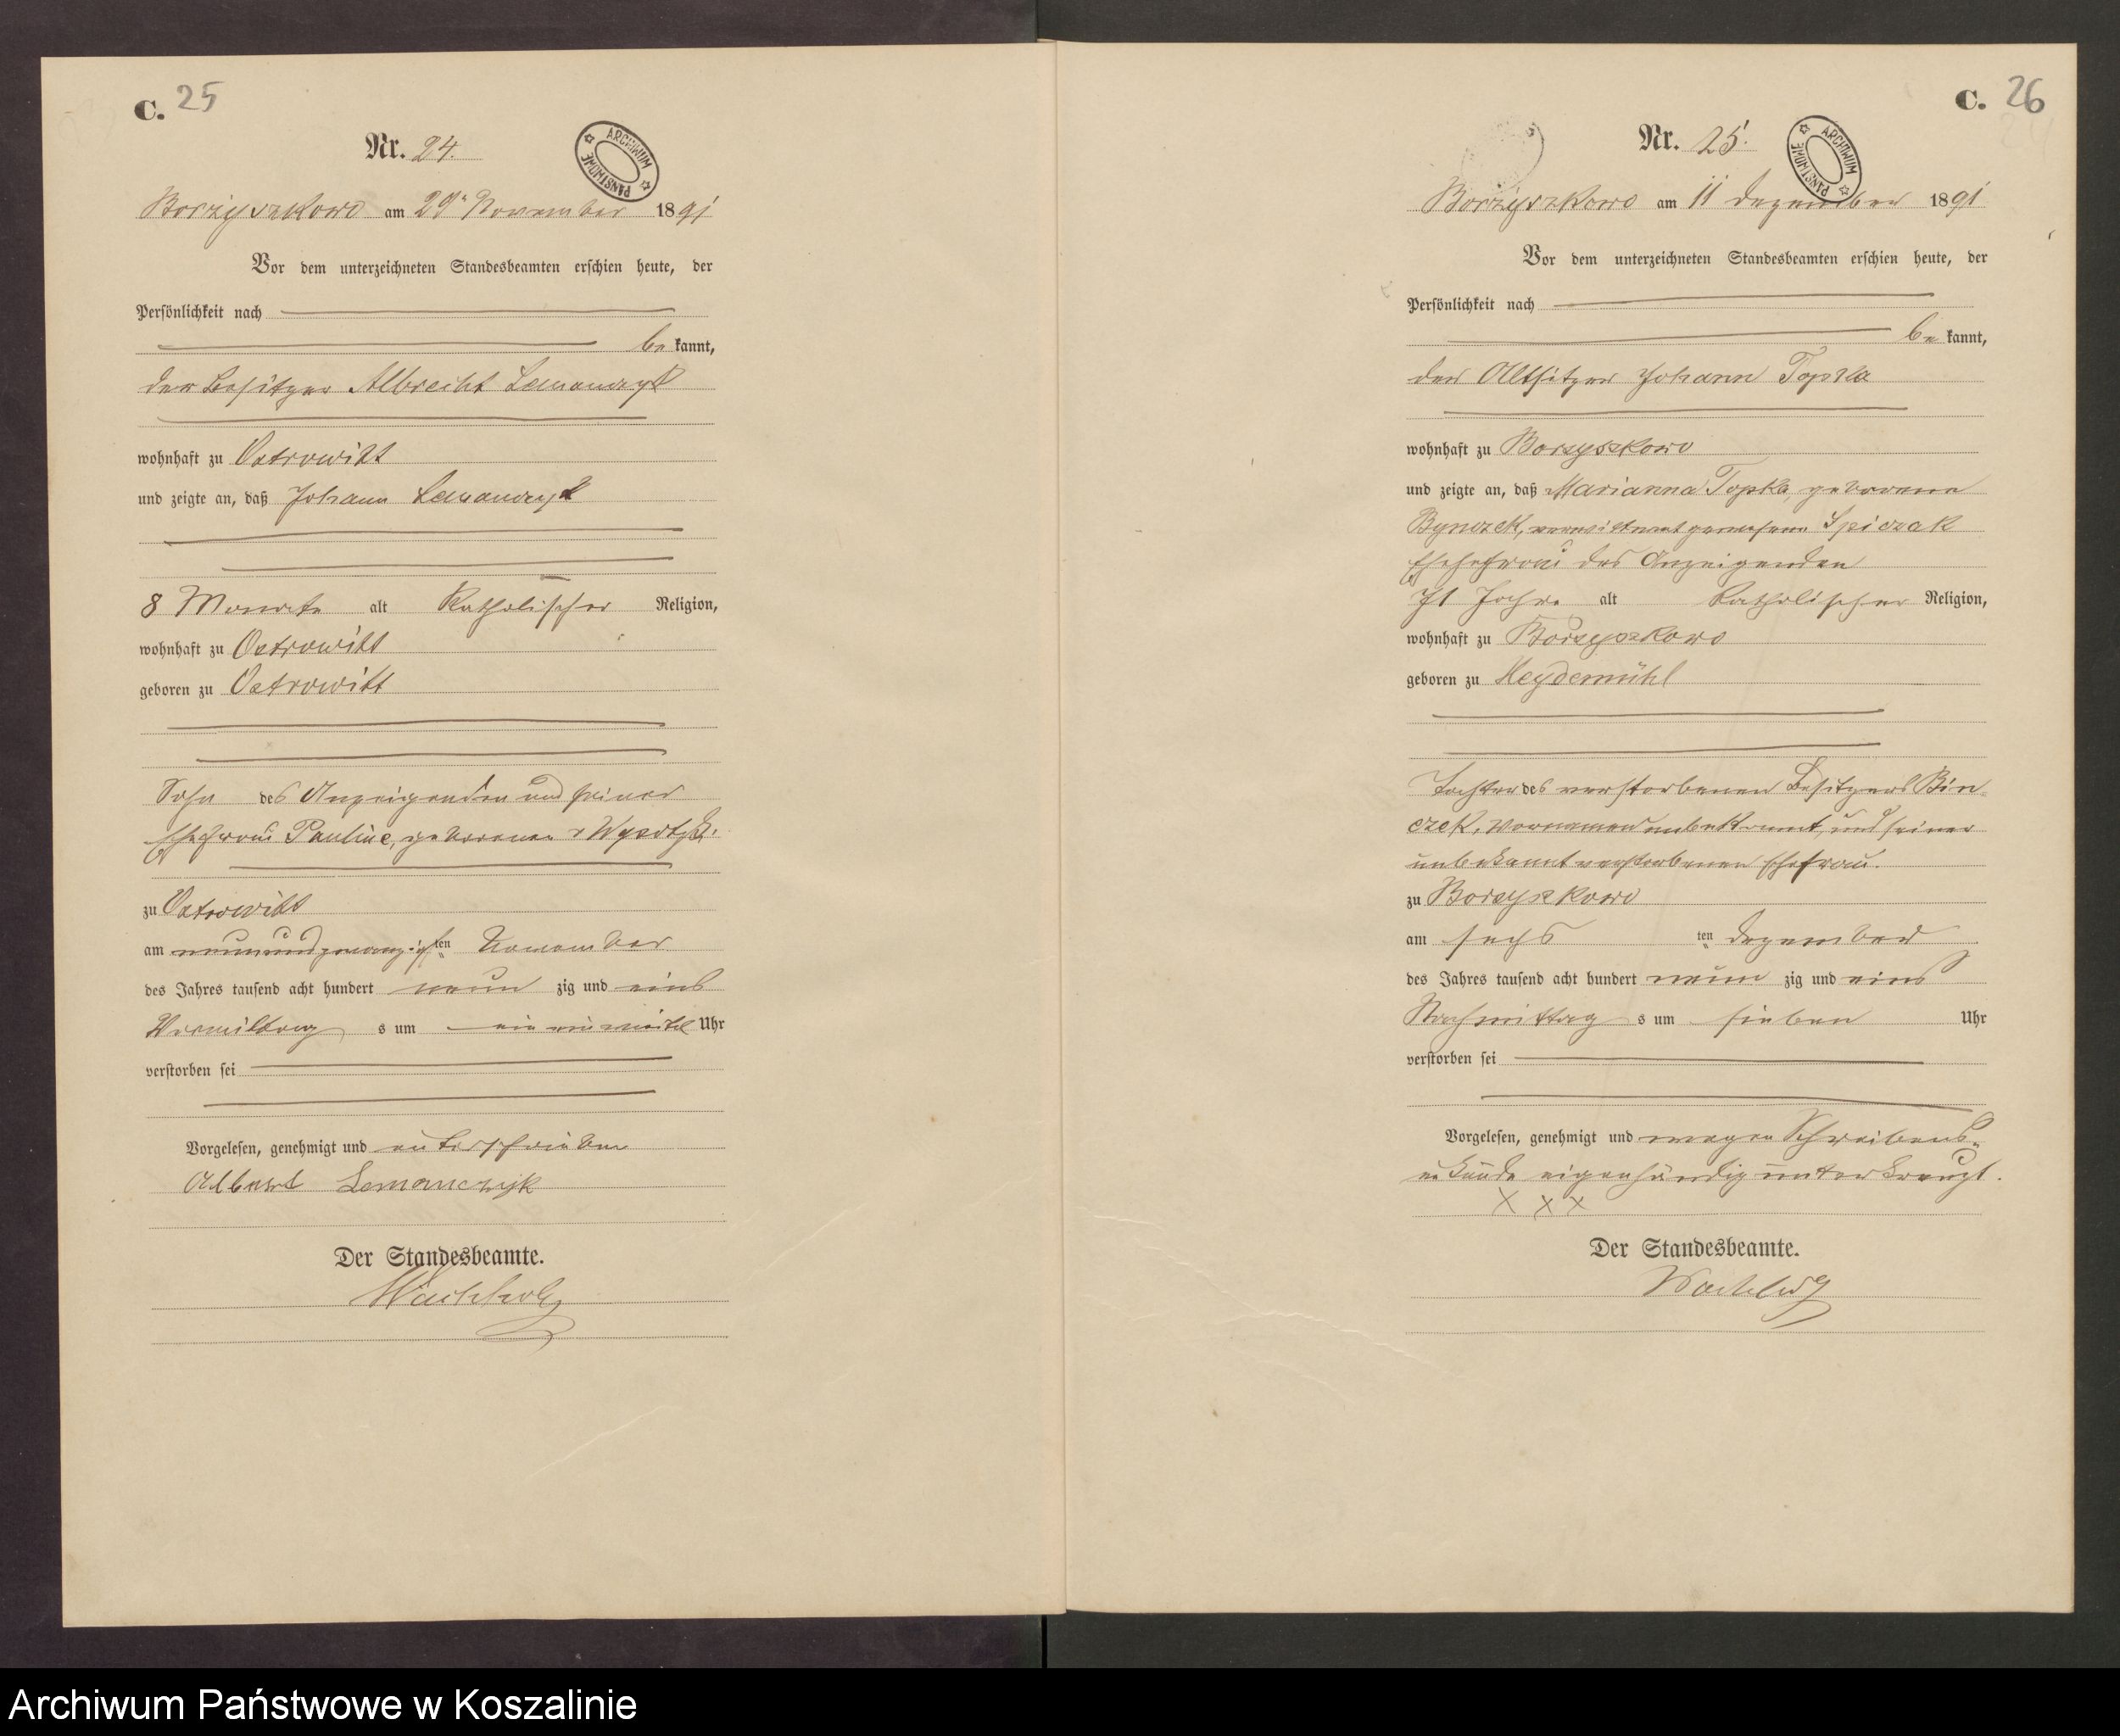 C. 25
Nr. 24.
ARCHIWUM PAŃSTWOWE
Borzyszkowo am 29. November 1891
Vor dem unterzeichneten Standesbeamten erschien heute, der
Persönlichkeit nach
be kannt,
der Besitzer Albrecht Lemanczyk
wohnhaft zu Ostrowitt
und zeigte an, daß Johann Lemanczyk
8 Monate alt Katholischer Religion,
wohnhaft zu Ostrowitt
geboren zu Ostrowitt
Sohn des Anzeigenden und seiner
Ehefrau Pauline, geborenen
zu Ostrowitt
am neunundzwanzigsten November
des Jahres tausend acht hundert neun zig und eins
Vormittag s um Uhr
verstorben sei
Vorgelesen, genehmigt und unterschrieben
Albert Lemanczyk
Der Standesbeamte.
Wachholz
C. 26
Nr. 25.
ARCHIWUM PAŃSTWOWE
Borzyszkowo am 11 Dezember 1891
Vor dem unterzeichneten Standesbeamten erschien heute, der
Persönlichkeit nach
be kannt,
der Altsitzer Johann Topka
wohnhaft zu Borzyszkowo
und zeigte an, daß Marianna Topka, geborene
Bynczek, verwittwet gewesene Spiczak
Ehefrau des Anzeigenden
71 Jahre alt Katholischer Religion,
wohnhaft zu Borzyszkowo
geboren zu Heydemühl
Tochter des verstorbenen Besitzers Bin-
czek, Vornamen unbekannt, und seiner
unbekannt verstorbenen Ehefrau.
zu Borzyszkowo
am sechs ten Dezember
des Jahres tausend acht hundert neun zig und eins
Nachmittag s um sieben Uhr
verstorben sei
Vorgelesen, genehmigt und wegen Schreibens-
unkunde eigenhändig unterkreuzt.
X X X
Der Standesbeamte.
Wachholz
Archiwum Państwowe w Koszalinie